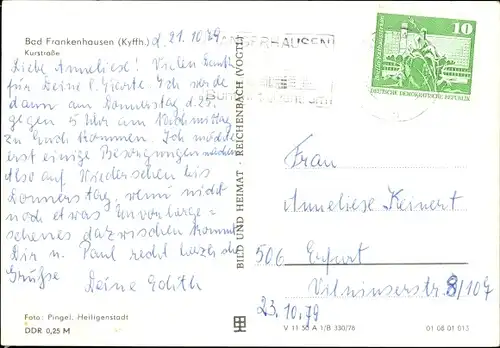 Bad Frankenhausen (Kyffh.) d. 21.10.79
Kurstraße
Liebe Anneliese! Vielen Dank
für Deine l. Karte. Ich werde
dann am Donnerstag d. 25.
gegen 5 Uhr am Nachmittag
zu Euch kommen. Ich möchte
erst einige Besorgungen machen.
Also auf Wiedersehen bis
Donnerstag, wenn nicht
noch etwas Unvorherge=
sehenes dazwischen kommt.
Dir u. Paul recht herzliche
Grüße Deine Edith
Foto: Pingel, Heiligenstadt
DDR 0,25 M
BILD UND HEIMAT · REICHENBACH (VOGTL)
SANGERHAUSEN
10
DEUTSCHE DEMOKRATISCHE REPUBLIK
Frau
Anneliese Keinert
506 Erfurt
Vilniuserstr. 8/107
23.10.79
V 11 50 A 1/B 330/76 01 08 01 013